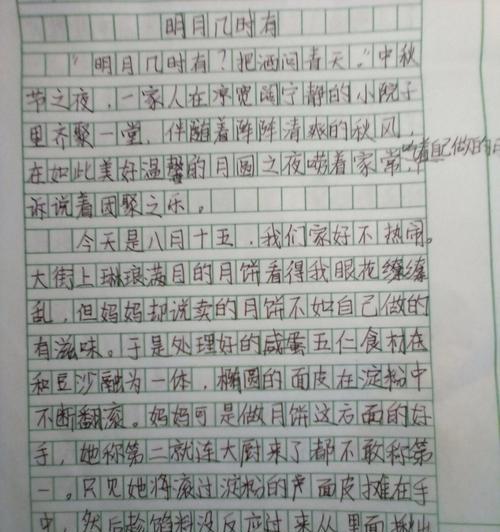 明月几时有
"明月几时有?把酒问青天。"中秋
节之夜,一家人在凉宽阔宁静的小院子
里齐聚一堂,伴随着阵阵清爽的秋风,
在如此美好温馨的月圆之夜唠着家常,吃着自己做好的月
诉说着团聚之乐。
今天是八月十五,我们家好不热闹。
大街上琳琅满目的月饼看得我眼花缭缭
乱,但妈妈却说卖的月饼不如自己做的
有滋味。于是处理好的咸蛋五仁食材在
和豆沙融为一体,椭圆的面皮在淀粉中
不断翻滚。妈妈可是做月饼这方面的好
手,她称第二就连大厨来了都不敢称第
一。只见她将滚过淀粉的面皮摊在手
中,然后趁馅料没反应过来从里面揪